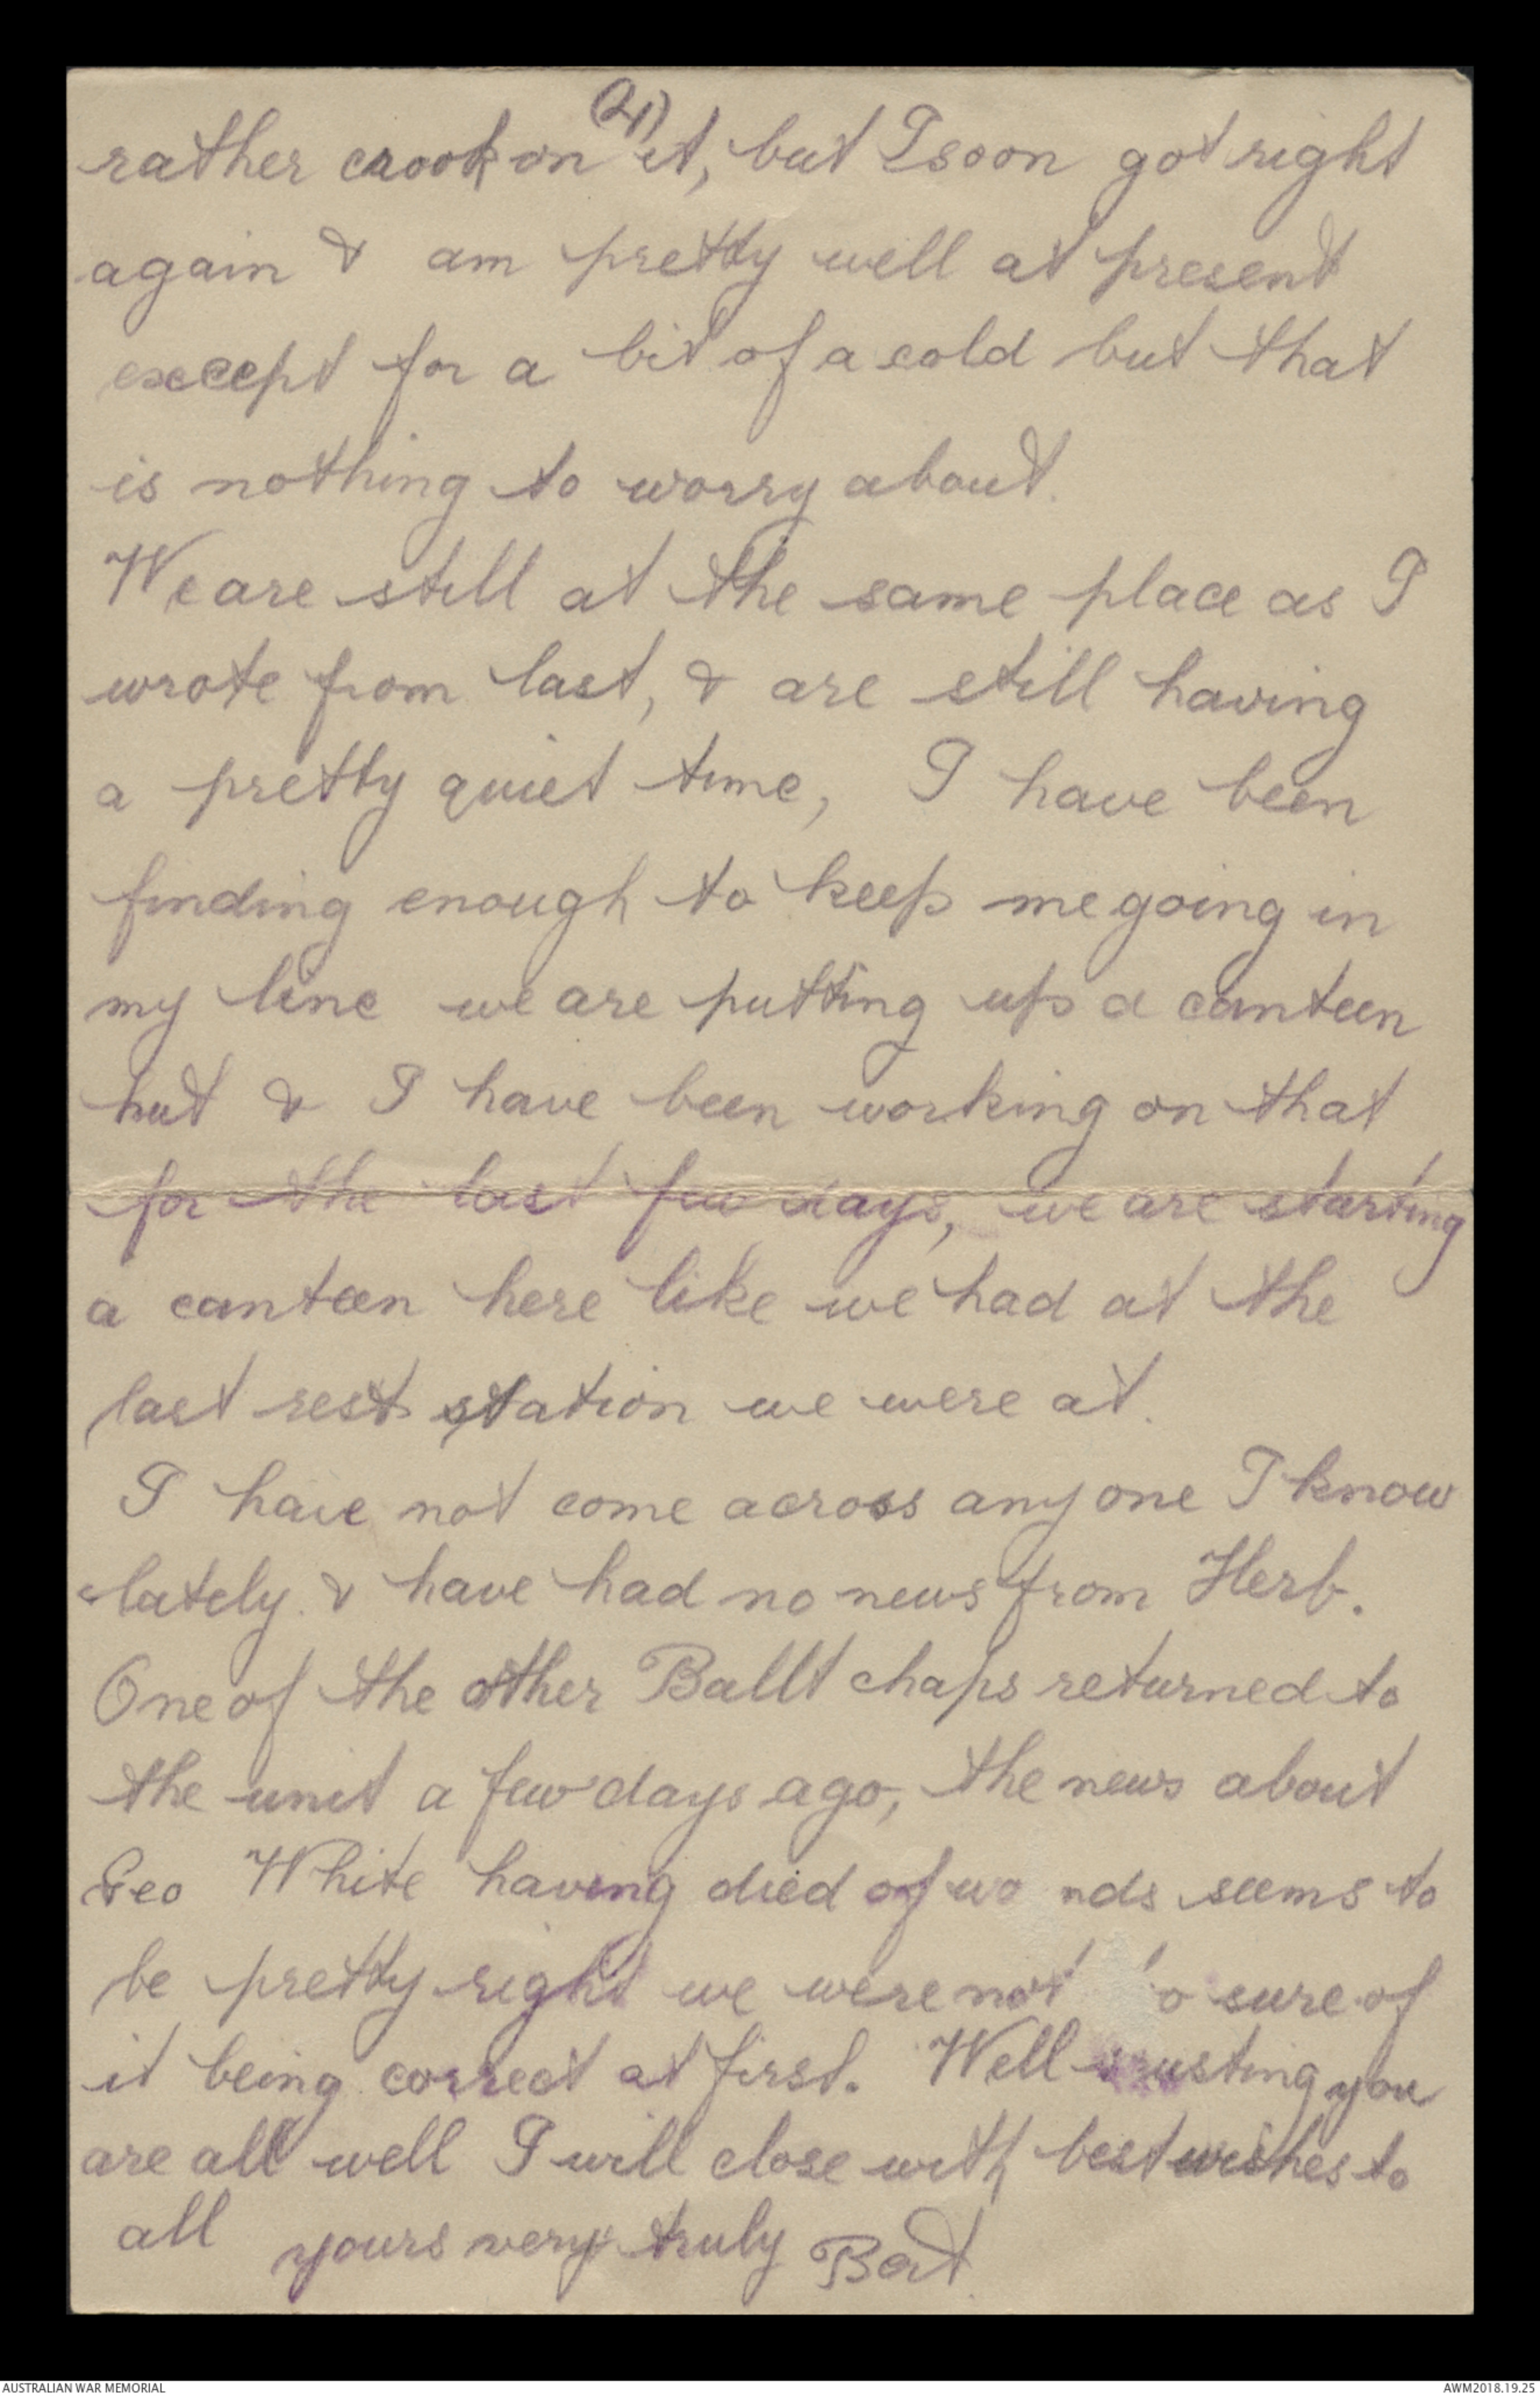 (4)
rather crook on it, but I soon got right
again & am pretty well at present
except for a bit of a cold but that
is nothing to worry about.
We are still at the same place as I
wrote from last, & are still having
a pretty quiet time, I have been
finding enough to keep me going in
my line we are putting up a canteen
hut & I have been working on that
for the last few days, we are starting
a canteen here like we had at the
last rest station we were at.
I have not come across any one I know
lately. & have had no news from Herb.
One of the other Ballt chaps returned to
the unit a few days ago, the news about
Geo White having died of wo nds seems to
be pretty right we were not o sure of
it being correct at first. Well trusting you
are all well I will close with best wishes to
all yours very truly Bert
AUSTRALIAN WAR MEMORIAL
AWM2018.19.25